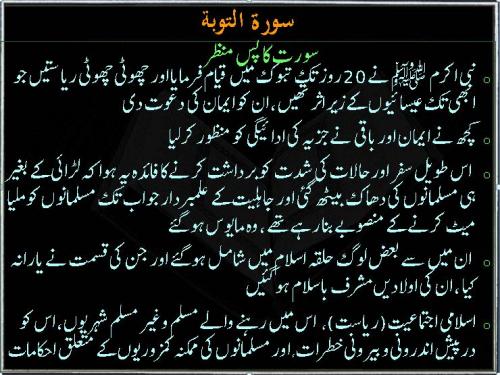 سورۃ التوبۃ
سورت کا پس منظر
نبی اکرم ﷺ نے 20 روز تک تبوک میں قیام فرمایا اور چھوٹی چھوٹی ریاستیں جو
ابھی تک عیسائیوں کے زیر اثر تھیں، ان کو ایمان کی دعوت دی
کچھ نے ایمان اور باقی نے جزیہ کی ادائیگی کو منظور کر لیا
اس طویل سفر اور حالات کی شدت کو برداشت کرنے کا فائدہ یہ ہوا کہ لڑائی کے بغیر
ہی مسلمانوں کی دھاک بیٹھ گئی اور جاہلیت کے علمبردار جواب تک مسلمانوں کو ملیا
میٹ کرنے کے منصوبے بنا رہے تھے ، وہ مایوس ہو گئے
ان میں سے بعض لوگ حلقہ اسلام میں شامل ہو گئے اور جن کی قسمت نے یارانہ
کیا ، ان کی اولادیں مشرف باسلام ہو گئیں
اسلامی اجتماعیت (ریاست)، اس میں رہنے والے مسلم و غیر مسلم شہریوں، اس کو
در پیش اندرونی و بیرونی خطرات، اور مسلمانوں کی ممکنہ کمزوریوں کے متعلق احکامات